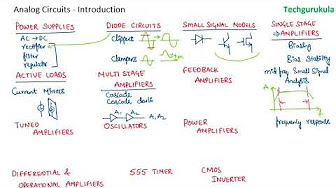 Analog Circuits - Introduction
Techgurukula
POWER SUPPLIES
AC → DC
rectifier
filter
regulator
DIODE CIRCUITS
clippers
clampers
SMALL SIGNAL MODELS
SINGLE STAGE
AMPLIFIERS
Biasing
Bias Stability
mid freq Small Signal
Analysis
frequency response
ACTIVE LOADS
Current Mirrors
MULTI STAGE
AMPLIFIERS
Cascade
Cascode
A₁ A₂
A₁ A₂
FEEDBACK
AMPLIFIERS
TUNED
AMPLIFIERS
OSCILLATORS
POWER
AMPLIFIERS
DIFFERENTIAL &
OPERATIONAL AMPLIFIERS
555 TIMER
CMOS
INVERTER